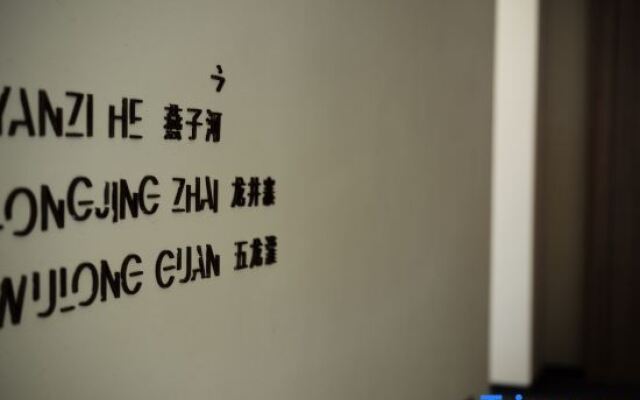 YANZI HE 燕子河
LONGJING ZHAI 龙井寨
WULONG GUAN 五龙灌